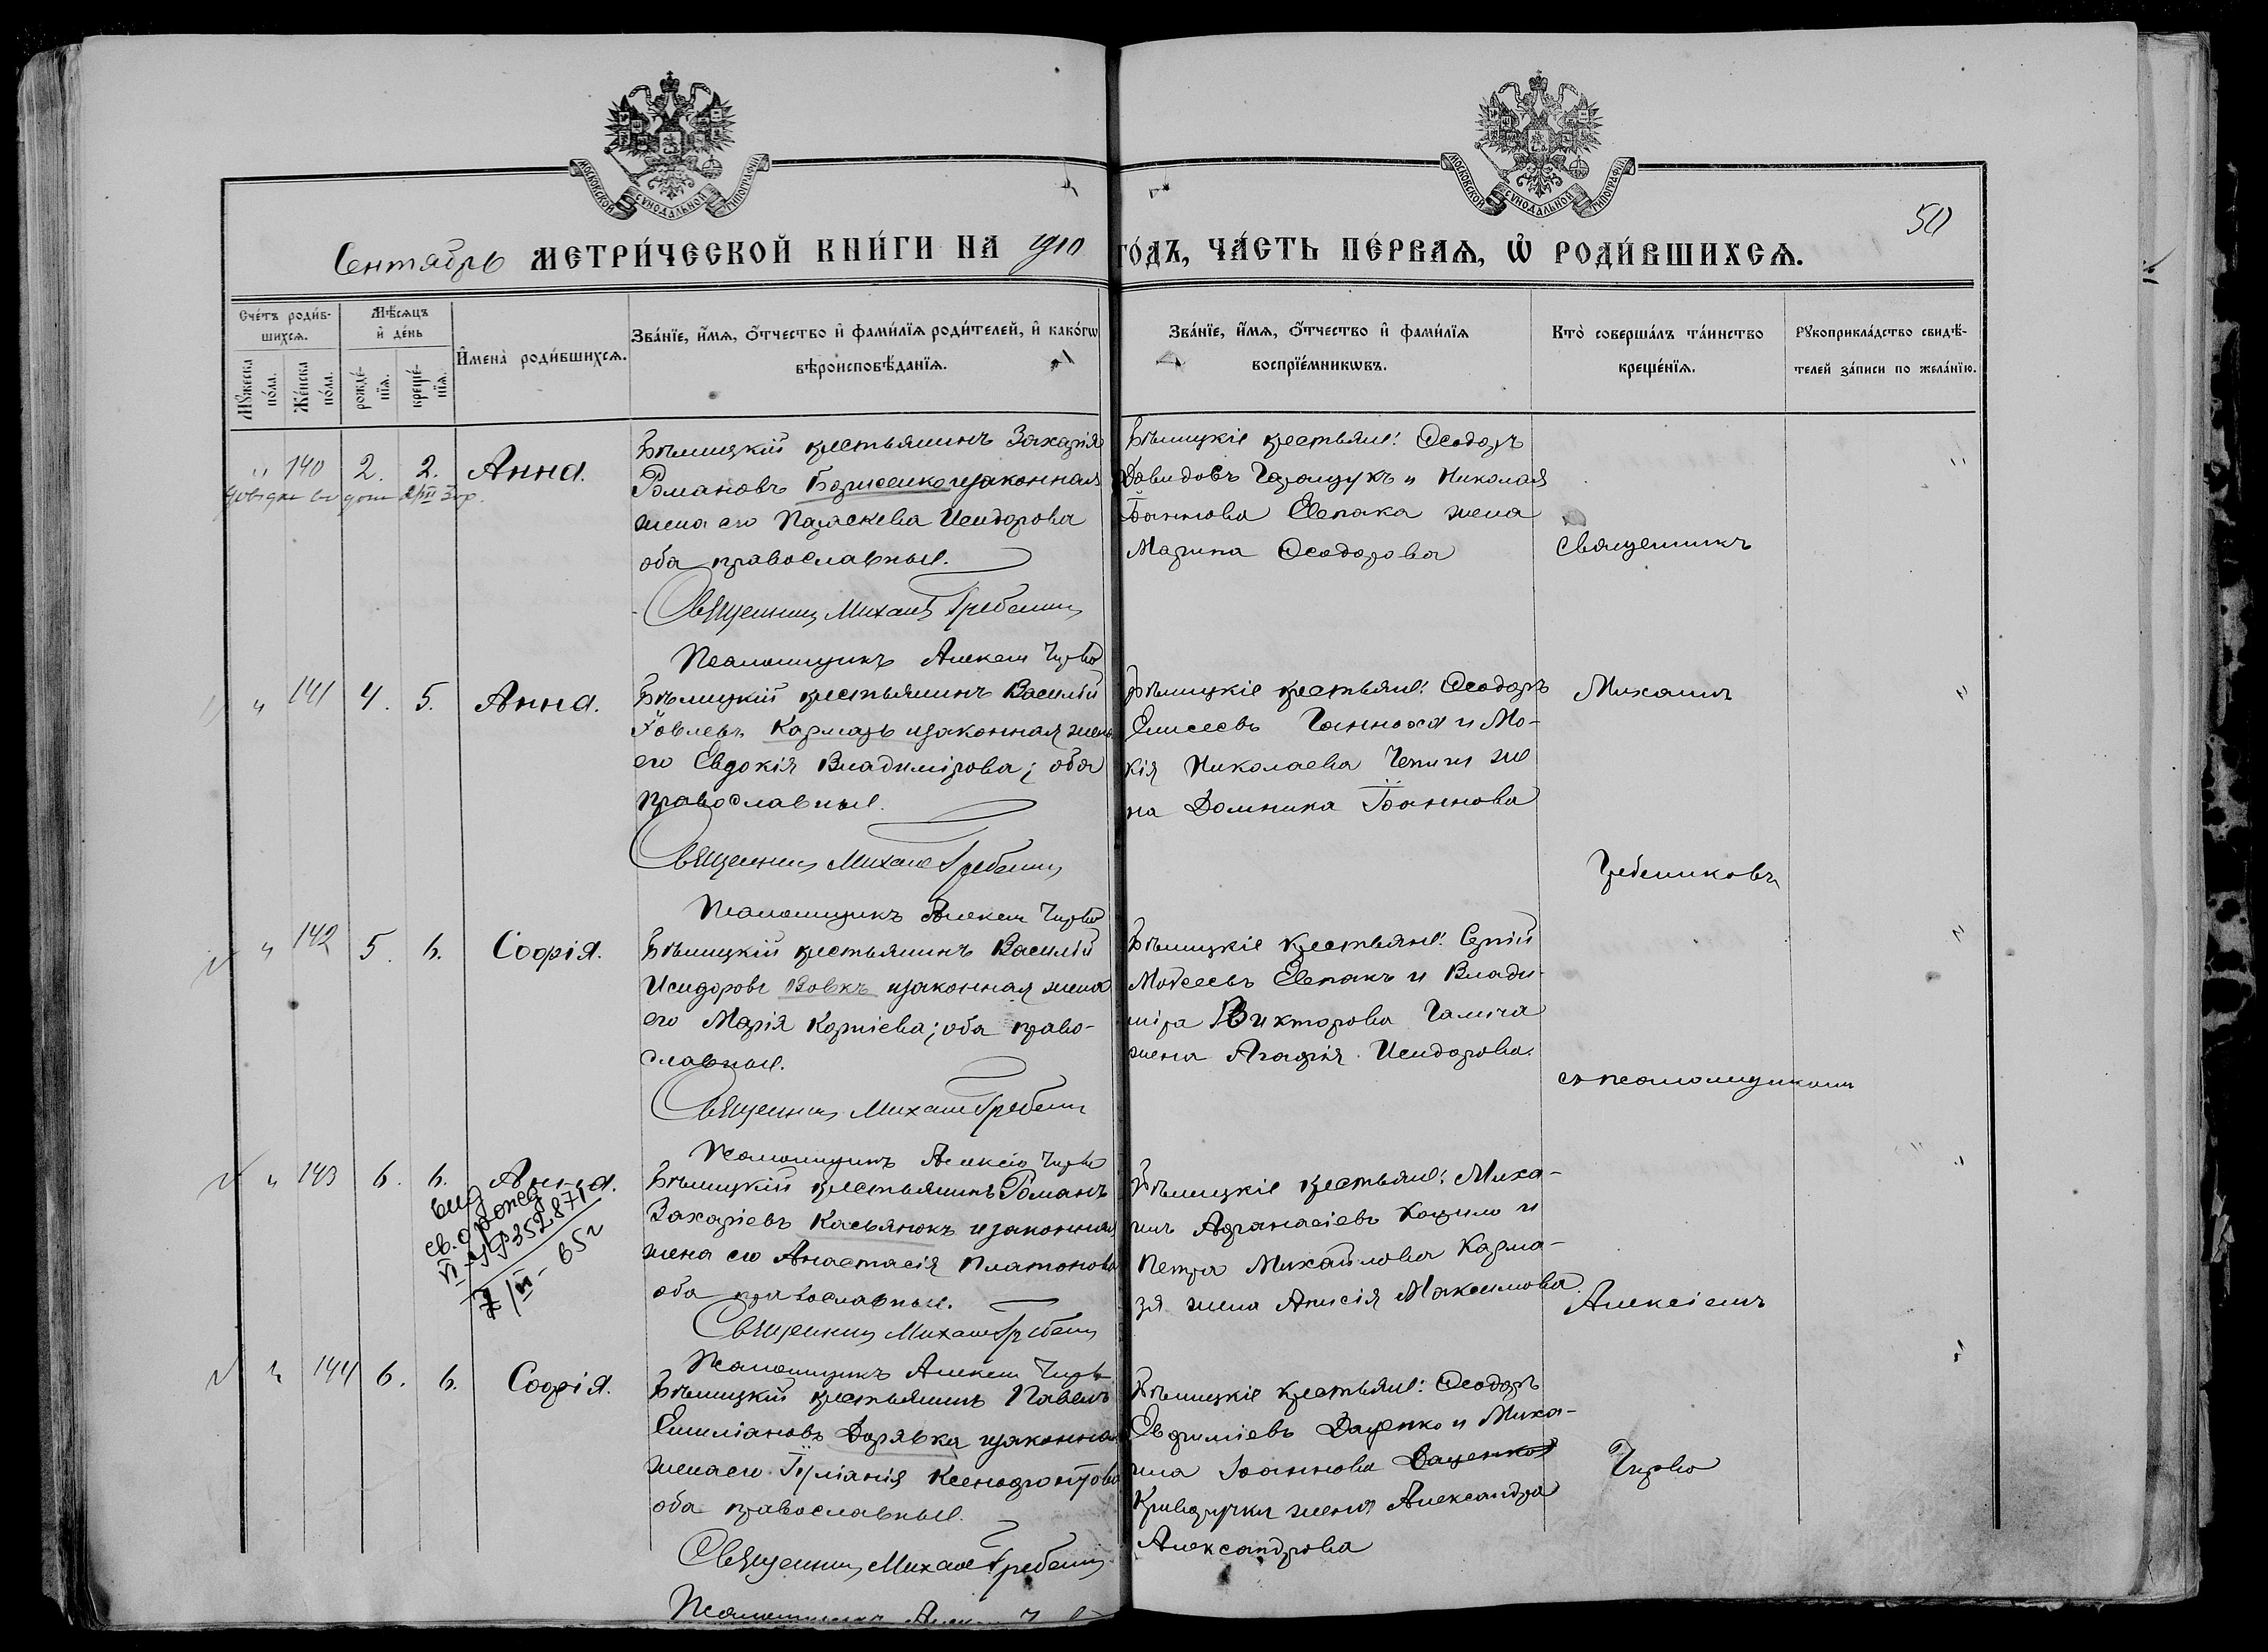 МОСКОВСКОЙ СѴНОДАЛЬНОЙ ТИПОГРАФІИ
МОСКОВСКОЙ СѴНОДАЛЬНОЙ ТИПОГРАФІИ
50
Сентябрь МЕТРИ́ЧЕСКОЙ КНИ́ГИ НА 1910 ГО́ДЪ, ЧА́СТЬ ПЕ́РВАѦ, Ѡ҆ РОДИ́ВШИХСѦ.
Сче́тъ роди́в-
шихсѧ.
Мꙋ́жеска по́ла.
Же́нска по́ла.
Мѣ́сѧцъ
и҆ де́нь
рожде́-нїѧ.
креще́-нїѧ.
И҆мена̀ роди́вшихсѧ.
Зва́нїе, и҆́мѧ, ѻ҆́тчество и҆ фами́лїѧ роди́телей, и҆ како́гѡ
вѣроисповѣ́данїѧ.
Зва́нїе, и҆́мѧ, ѻ҆́тчество и҆ фами́лїѧ
воспрїе́мникѡвъ.
Кто̀ соверша́лъ та́инство
креще́нїѧ.
Рꙋкоприкла́дство свидѣ́-
телей за́писи по жела́нїю.
" 140 2. 2. Анна.
Бѣлицкій крестьянинъ Захарія
Романовъ Борисенко и законная
жена его Параскева Исидорова
оба православные.
Священникъ Михаилъ
Псаломщикъ Алексѣй Чирво
Бѣлицкіе крестьяне: Ѳеодоръ
Давидовъ Геращукъ и Николая
Іоаннова Евпака жена
Марина Ѳеодорова
Священникъ
" 141 4. 5. Анна.
Бѣлицкій крестьянинъ Василій
Іовлевъ Кармазь и законная жена
его Евдокія Владимірова; оба
православные.
Священникъ Михаилъ
Псаломщикъ Алексѣй Чирво
Бѣлицкіе крестьяне: Ѳеодоръ
Елисеевъ Ганноха и Мо-
кія Николаева Чепиги же
на Домника Іоаннова
Михаилъ
Гребениковъ
" 142 5. 6. Софія.
Бѣлицкій крестьянинъ Василій
Исидоровъ Вовкъ и законная жена
его Марія Корніева; оба право-
славные.
Священникъ Михаилъ
Псаломщикъ Алексѣй Чирво
Бѣлицкіе крестьяне: Сергій
Моѵсеевъ Евпакъ и Влади-
міра Викторова Галича
жена Агафія Исидорова.
съ псаломщикомъ
" 143 6. 6. Анна.
вид
св. о рожд
VI-УР 352871
7/VI-65г
Бѣлицкій крестьянинъ Романъ
Захаріевъ Касьянюкъ и законная
жена его Анастасія Платонова
оба православные.
Священникъ Михаилъ
Псаломщикъ Алексѣй Чирво
Бѣлицкіе крестьяне: Миха-
илъ Афанасіевъ и
Петра Михайлова Карма-
зя жена Анисія Максимова.
Алексіемъ
" 144 6. 6. Софія.
Бѣлицкій крестьянинъ Павелъ
Емиліановъ Дорявка и законная
жена его Іуліанія Ксенофонтова
оба православные.
Священникъ Михаилъ
Псаломщикъ
Бѣлицкіе крестьяне: Ѳеодоръ
Евфиміевъ Даценко и Миха-
ила Іоаннова Даценко
Криворучки жена Александра
Александрова
Чирво